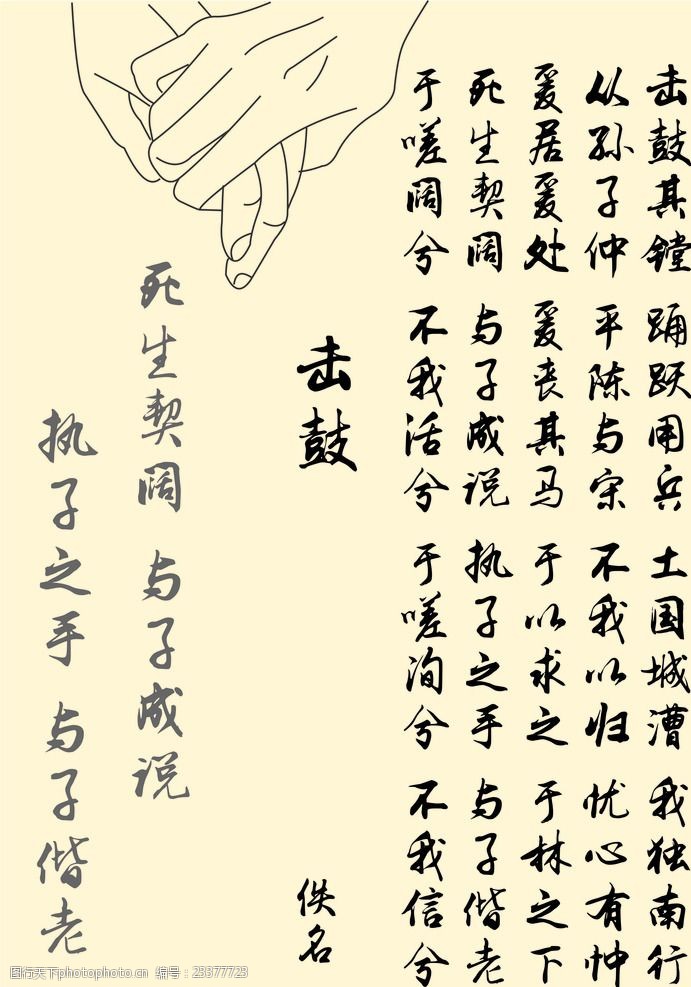 击鼓其镗 踊跃用兵 土国城漕 我独南行
从孙子仲 平陈与宋 不我以归 忧心有忡
爰居爰处 爰丧其马 于以求之 于林之下
死生契阔 与子成说 执子之手 与子偕老
于嗟阔兮 不我活兮 于嗟洵兮 不我信兮
击鼓
佚名
死生契阔 与子成说
执子之手 与子偕老
图行天下photophoto.cn 编号:23377723